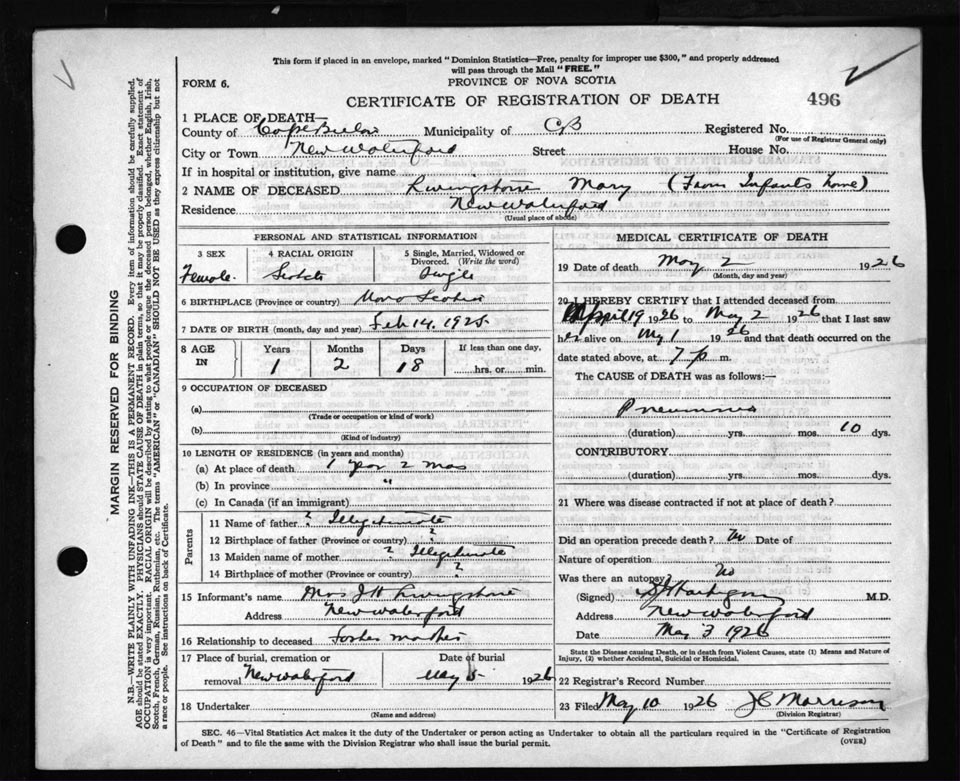 This form if placed in an envelope, marked "Dominion Statistics—Free, penalty for improper use $300," and properly addressed
will pass through the Mail "FREE."
FORM 6.
PROVINCE OF NOVA SCOTIA
CERTIFICATE OF REGISTRATION OF DEATH
496
1 PLACE OF DEATH—
County of Cape Breton Municipality of CB Registered No.
(For use of Registrar General only)
City or Town New Waterford Street House No.
If in hospital or institution, give name
2 NAME OF DECEASED Livingstone Mary (From Infants home)
Residence New Waterford
(Usual place of abode)
PERSONAL AND STATISTICAL INFORMATION
3 SEX
Female.
4 RACIAL ORIGIN
Scotch
5 Single, Married, Widowed or
Divorced. (Write the word)
Single
6 BIRTHPLACE (Province or country) Nova Scotia
7 DATE OF BIRTH (month, day and year) Feb 14, 1925
8 AGE
IN
Years
1
Months
2
Days
18
If less than one day,
hrs. or min.
9 OCCUPATION OF DECEASED
(a)
(Trade or occupation or kind of work)
(b)
(Kind of industry)
10 LENGTH OF RESIDENCE (in years and months)
(a) At place of death 1 year 2 mos
(b) In province "
(c) In Canada (if an immigrant)
Parents
11 Name of father ? Illegitimate
12 Birthplace of father (Province or country) ?
13 Maiden name of mother ? Illegitimate
14 Birthplace of mother (Province or country) ?
15 Informant's name Mrs J H Livingstone
Address New Waterford
16 Relationship to deceased foster mother
17 Place of burial, cremation or
removal New Waterford
Date of burial
May 5 1926
18 Undertaker
(Name and address)
MEDICAL CERTIFICATE OF DEATH
19 Date of death May 2 1926
(Month, day and year)
20 I HEREBY CERTIFY that I attended deceased from
April 19 1926 to May 2 1926 that I last saw
her alive on May 1 1926 and that death occurred on the
date stated above, at 7 p m.
The CAUSE of DEATH was as follows:—
Pneumonia
(duration) yrs. mos. 10 dys.
CONTRIBUTORY
(duration) yrs. mos. dys.
21 Where was disease contracted if not at place of death?
Did an operation precede death? No Date of
Nature of operation
Was there an autopsy? No
(Signed) M.D.
Address New Waterford
Date May 3 1926
State the Disease causing Death, or in death from Violent Causes, state (1) Means and Nature of
Injury, (2) whether Accidental, Suicidal or Homicidal.
22 Registrar's Record Number
23 Filed May 10 1926 J C Morrison
(Division Registrar)
SEC. 46—Vital Statistics Act makes it the duty of the Undertaker or person acting as Undertaker to obtain all the particulars required in the "Certificate of Registration
of Death" and to file the same with the Division Registrar who shall issue the burial permit.
(OVER)
MARGIN RESERVED FOR BINDING
N.B.—WRITE PLAINLY WITH UNFADING INK—THIS IS A PERMANENT RECORD. Every item of information should be carefully supplied.
AGE should be stated EXACTLY. PHYSICIANS should STATE CAUSE OF DEATH in plain terms, so that it may be properly classified. Exact statement of
OCCUPATION is very important. RACIAL ORIGIN will be described by stating to what people or tongue the deceased person belonged, whether English, Irish,
Scotch, French, German, Russian, Ruthenian, etc. The terms "AMERICAN" or "CANADIAN" SHOULD NOT BE USED as they express citizenship but not
a race or people. See instructions on back of Certificate.